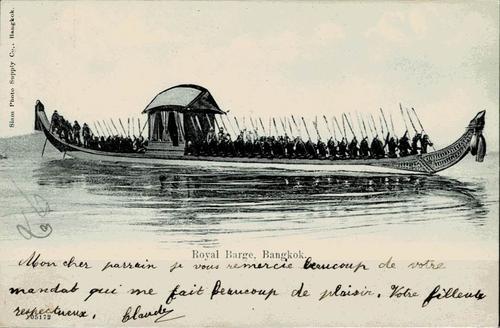 Siam Photo Supply Co., Bangkok.
Royal Barge, Bangkok.
Mon cher parrain je vous remercie beaucoup de votre
mandat qui me fait beaucoup de plaisir. Votre filleule
respectueux. Claude